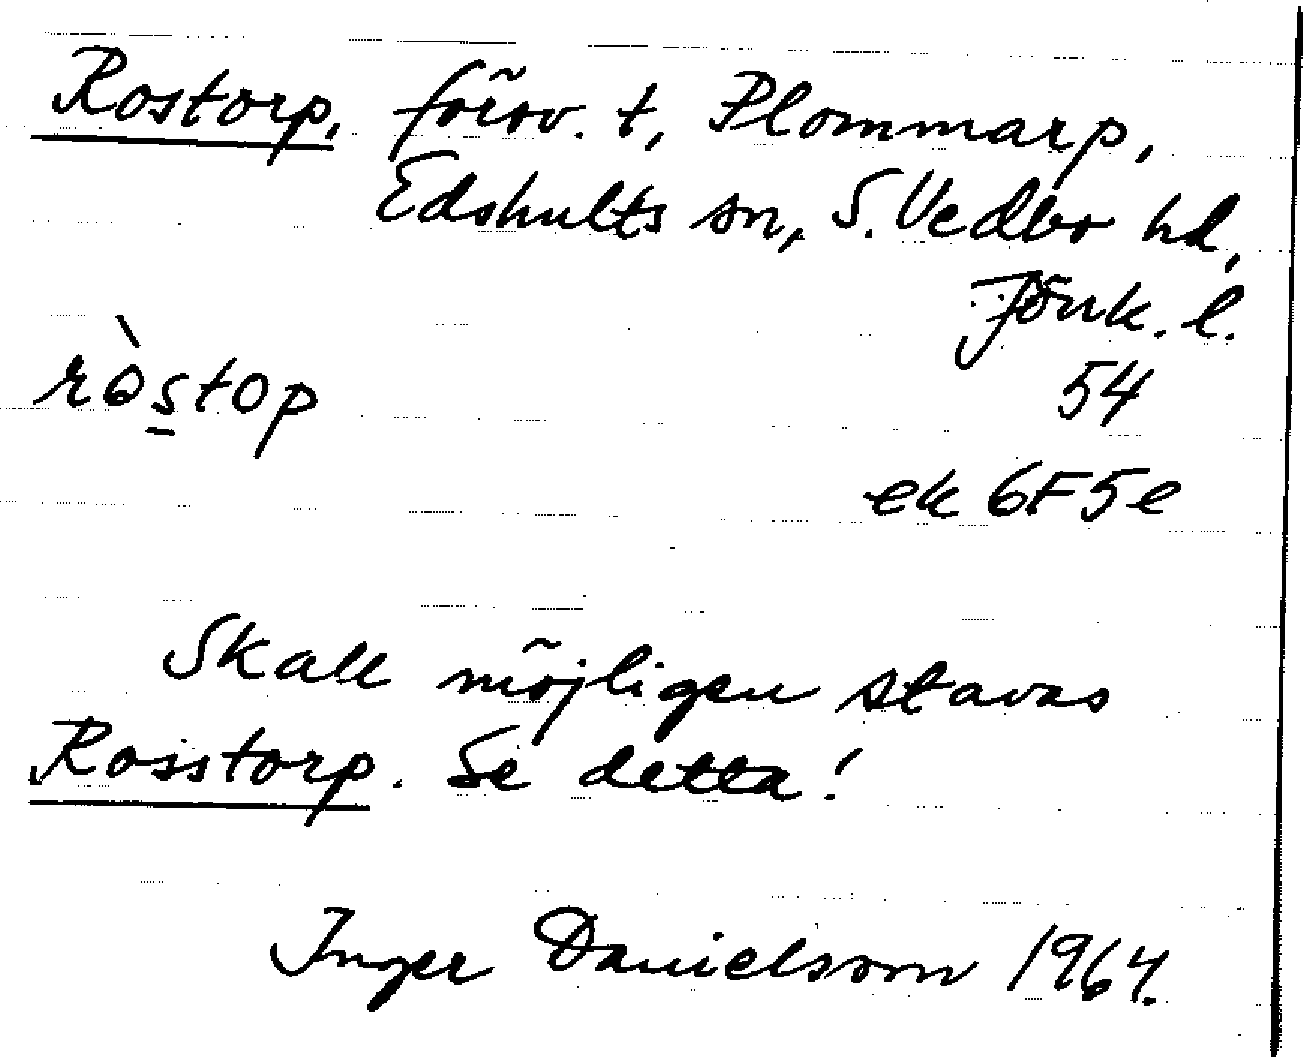 Rostorp, försv. t, Plommarp,
Edshults sn, S. Vedbo hd,
Jönk. l.
ròs̱top
54
ek 6F5e
Skall möjligen stavas
Rosstorp. Se detta!
Inger Danielsson 1964.